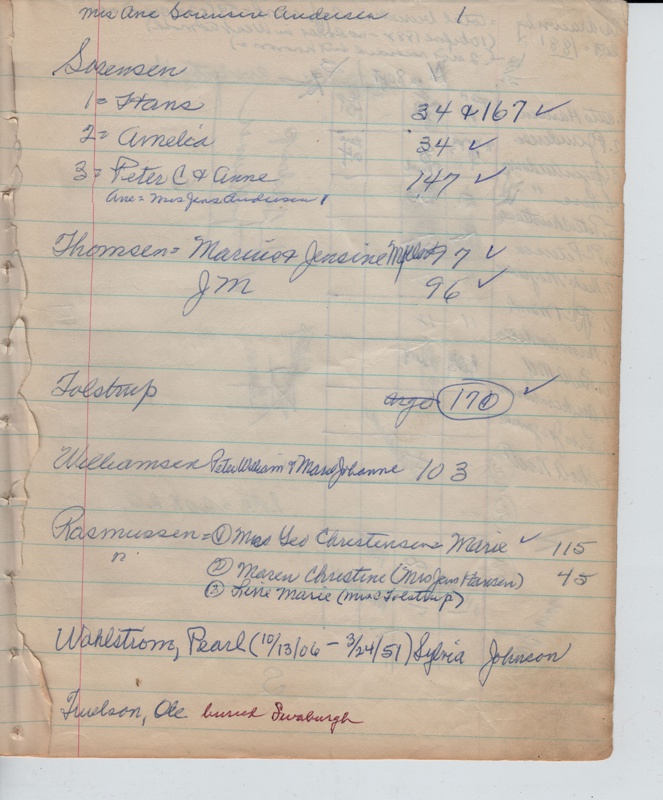 Mrs Ane Sorensen Andersen 1
Sorensen
1 = Hans 34 & 167 ✓
2 = Amelia 34 ✓
3 = Peter C & Anne 147 ✓
Ane = Mrs Jens Andersen 1
Thomsen = Marius & Jensine 97 ✓
J M 96 ✓
Tolstrup 170 ✓
Williamsen Peter William & Maria Johanne 103
Rasmussen = ① Mrs Geo Christensen = Marie ✓ 115
② Maren Christine (Mrs Jens Hansen) 45
③ Marie (Mrs Tolstrup)
Wahlstrom, Pearl (10/13/06 – 3/24/51) Sylvia Johnson
Truelson, Ole buried Swaburgh